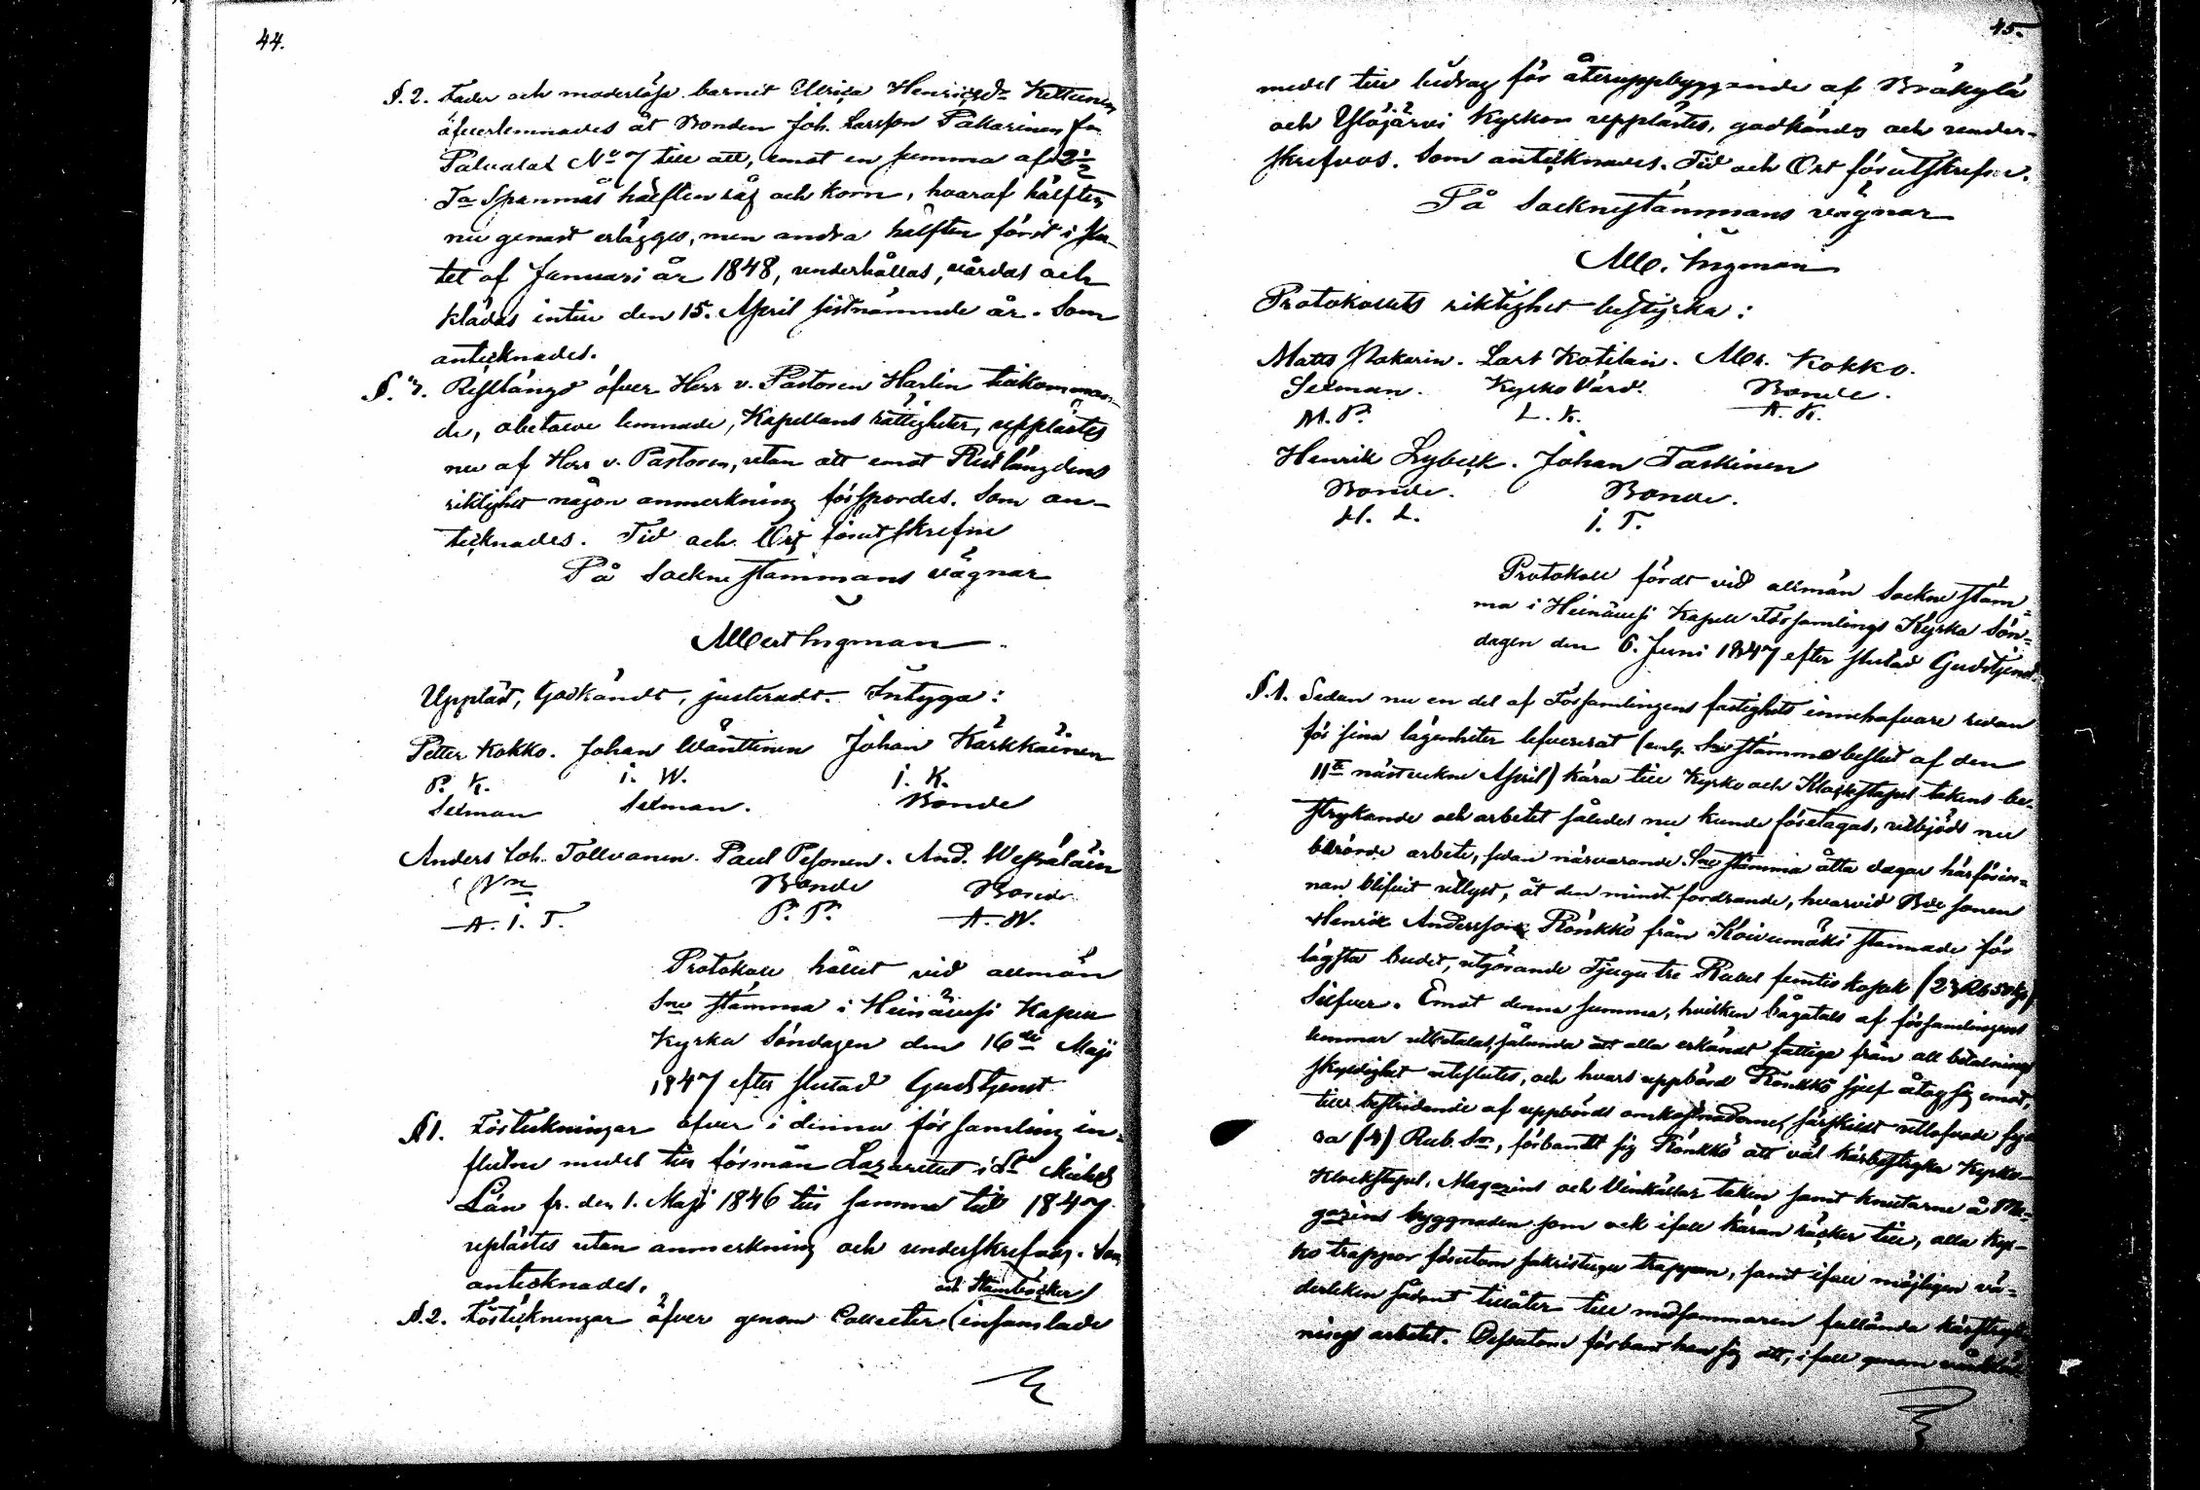 44.
§. 2. Fader och moderlösa barnet Ulrica Henricsdr Kettunen
öfverlemnades åt Bonden Joh. Larsson Pakarinen fr.
Palvalax No 7 till att, emot en summa af 2½
Tr Spannmål hälften råg och korn, hvaraf hälften
nu genast erlägges, men andra hälften först i slu-
tet af Januari år 1848, underhållas, vårdas och
klädas intill den 15. April sistnämnde år. Som
antecknades.
§. 3. Restlängd öfver Herr v. Pastoren Harlin tillkomman-
de, obetalde lemnade, Kapellans rättigheter, upplästes
nu af Herr v. Pastoren, utan att emot Restlängdens
riktighet någon anmerkning förspordes. Som an-
tecknades. Tid och Ort förutskrefne
På Sockne stämmans vägnar
Albert Ingman
Uppläst, Godkändt, justeradt. Intyga:
Petter Kokko. Johan Wänttinen Johan Kärkkäinen
P. K. i. W. j. K.
Sexman Sexman. Bonde
Anders Joh. Tollvanen. Paul Pesonen. And. Wesaläin
Bonde Bonde
A. i. T. P. P. A. W.
Protokoll hållet vid allmän
Sne stämma i Heinävesi Kapell
Kyrka Söndagen den 16de Maji
1847 efter slutad Gudstjenst
§ 1. Förteckningar öfver i denna församling in-
flutne medel till förmån Lazarettet i St Michels
Län fr. den 1. Maji 1846 till samma tid 1847
upplästes utan anmerkning och underskrefvos. Som
antecknades.
och Stamböcker
§. 2. Förteckningar öfver genom Collecter (insamlade
45.
medel till bidrag för återuppbyggande af Bräkylä
och Ylöjärvi Kyrkor upplästes, godkändes och under-
skrefvos. Som antecknades. Tid och Ort förutskrefne.
På Socknestämmans vägnar
Alb. Ingman
Protokollets riktighet bestyrka:
Matts Pakarin. Lars Kotilain. Alex. Kokko.
Sexman. Kyrko Värd. Bonde.
M. P. L. K. A. K.
Henrik Lybeck. Johan Taskinen
Bonde. Bonde.
H. L. i. T.
Protokoll fördt vid allmän Sockne stäm-
ma i Heinävesi Kapell Församlings Kyrka Sön-
dagen den 6. Juni 1847 efter slutad Gudstjenst.
§. 1. Sedan nu en del af Församlingens fastighets innehafvare redan
för sina lägenheter lefvererat (enl. Sne stämmobeslut af den
11te nästvekne April) tjära till Kyrko och Klockstapel takens be-
strykande och arbetet således nu kunde företagas, utbjöds nu
berörde arbete, sedan närvarande Sne stämma åtta dagar härförin-
nan blifvit utlyst, åt den minst fordrande, hvarvid Bde sonen
Henrik Andersson Rönkkö från Koivumäki stannade för
lägsta budet, utgörande Tjugu tre Rubel femtio kopek (23 Rb 50 kp)
Silfver. Emot denna summa, hvilken bågatals af församlingens
lemmar utbetalas, sålunda att alla erkändt fattiga från all betalnings
skyldighet uteslutes, och hvars uppbörd Rönkkö sjelf åtog sig emot,
till bestridande af uppbörds omkostnaderne, särskildt utlofvade fy-
ra (4) Rub. Sr, förbandt sig Rönkkö att väl tjärbestryka Kyrko-
Klockstapel, Magasins och Vinkällar taken samt knutarne å Ma-
gasins byggnaden som ock ifall tjäran räcker till, alla Kyr-
ko trappor förutom sakristuge trappan, samt ifall möjligen vä-
derleken sådant tillåter till midsommaren fullända tjärstryk-
nings arbetet. Dessutom förband han sig att, i fall genom